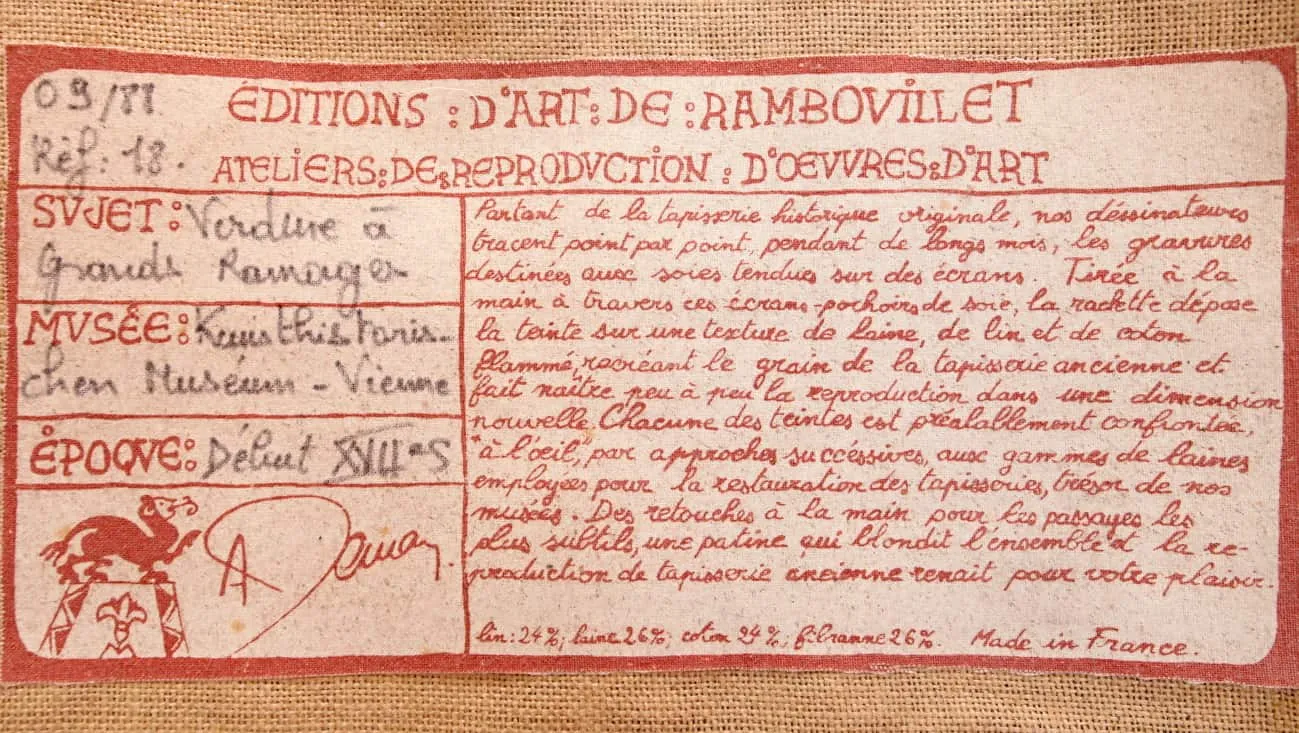 09/88
Réf: 18.
ÉDITIONS : D'ART : DE : RAMBOVILLET
ATELIERS : DE : REPRODVCTION : D'ŒVVRES : D'ART
SVJET : Verdure à
Grands Ramages
MVSÉE : Kunsthistoris-
chen Muséum - Vienne
ÉPOQVE : Début XVII°S
Partant de la tapisserie historique originale, nos déssinateurs
tracent point par point, pendant de longs mois, les gravures
destinées aux soies tendues sur des écrans. Tirée à la
main à travers ces écrans-pochoirs de soie, la raclette dépose
la teinte sur une texture de laine, de lin et de coton
flammé, recréant le grain de la tapisserie ancienne et
fait naître peu à peu la reproduction dans une dimension
nouvelle. Chacune des teintes est préalablement confrontée,
"à l'œil", par approches succéssives, aux gammes de laines
employées pour la restauration des tapisseries, trésor de nos
musées. Des retouches à la main pour les passages les
plus subtils, une patine qui blondit l'ensemble et la re-
production de tapisserie ancienne renait pour votre plaisir.
lin: 24%; laine 26%; coton 24%; fibranne 26%. Made in France.